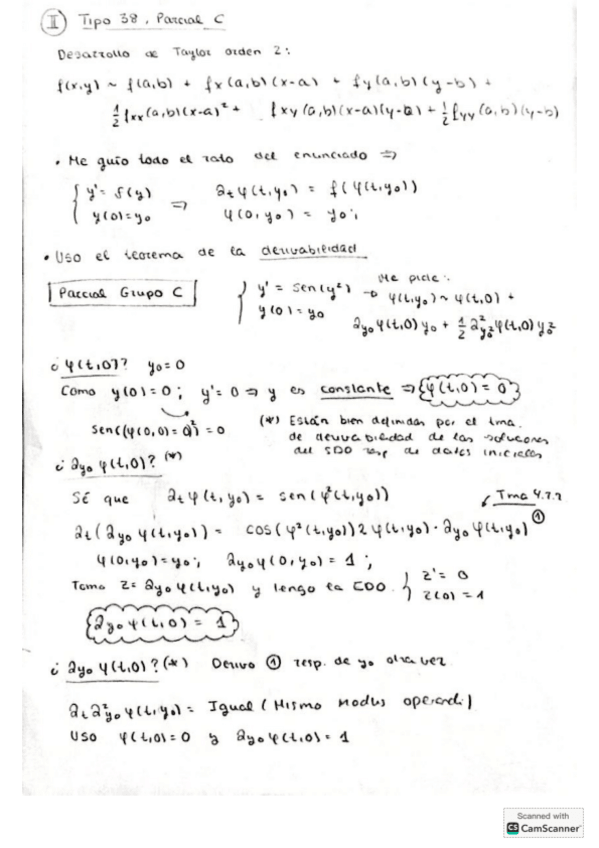 II Tipo 38, Parcial C
Desarrollo de Taylor orden 2:
f(x,y) ~ f(a,b) + fx(a,b)(x-a) + fy(a,b)(y-b) +
½ fxx(a,b)(x-a)² + fxy(a,b)(x-a)(y-b) + ½ fyy(a,b)(y-b)
• Me guío todo el rato del enunciado ⇒
{ y' = f(y) ⇒ ∂tφ(t,y₀) = f(φ(t,y₀))
y(0)=y₀ φ(0,y₀) = y₀;
• Uso el teorema de la derivabilidad
Parcial Grupo C { y' = sen(y²) → Me pide:
y(0) = y₀ φ(t,y₀) ~ φ(t,0) +
∂y₀φ(t,0) y₀ + ½ ∂²y₀²φ(t,0) y₀²
¿φ(t,0)? y₀=0
Como y(0)=0; y'=0 ⇒ y es constante ⇒ {φ(t,0) = 0}
sen((φ(0,0)=0)²) = 0
(*) Están bien definidas por el tma.
de derivabilidad de las soluciones
del SDO resp de datos iniciales
¿∂y₀φ(t,0)? (*)
SÉ que ∂tφ(t,y₀) = sen(φ²(t,y₀))
Tma 4.7.2
∂t(∂y₀φ(t,y₀)) = cos(φ²(t,y₀)) 2φ(t,y₀)·∂y₀φ(t,y₀) ①
φ(0,y₀)=y₀; ∂y₀φ(0,y₀) = 1;
Toma Z = ∂y₀φ(t,y₀) y tengo la EDO. { Z' = 0
Z(0) = 1
{∂y₀φ(t,0) = 1}
¿∂y₀φ(t,0)? (*) Derivo ① resp. de y₀ otra vez
∂t∂²y₀φ(t,y₀) = Igual (Mismo modus operandi)
Uso φ(t,0)=0 y ∂y₀φ(t,0)=1
Scanned with
CS CamScanner